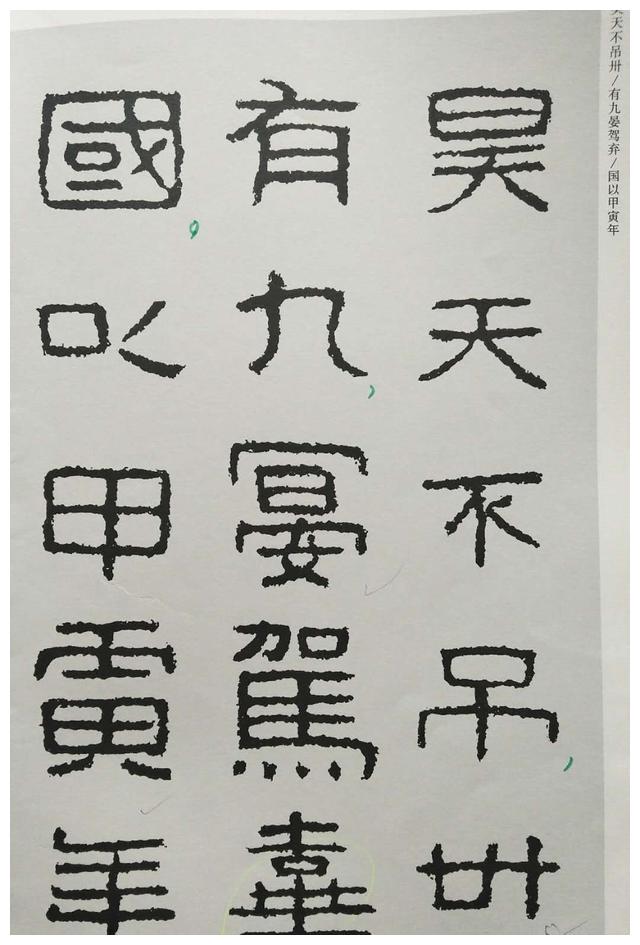 昊天不吊卅
有九晏駕棄
國以甲寅年
天不吊卅/有九晏驾弃/国以甲寅年